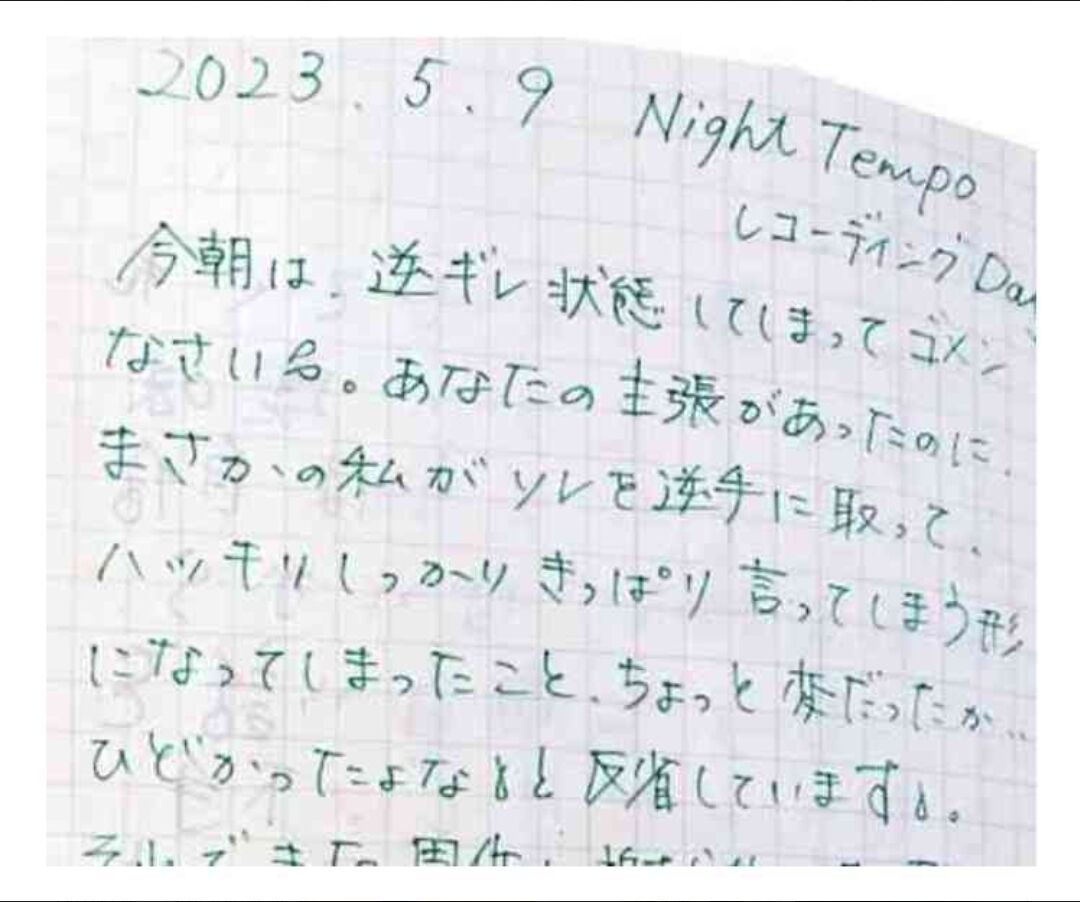 2023.5.9 Night Tempo
レコーディング Da
今朝は、逆ギレ状態してしまってゴメン
なさい。あなたの主張があったのに、
まさかの私がソレを逆手に取って、
ハッキリしっかりきっぱり言ってしまう形
になってしまったこと、ちょっと変だったか…
ひどかったよなと反省しています。